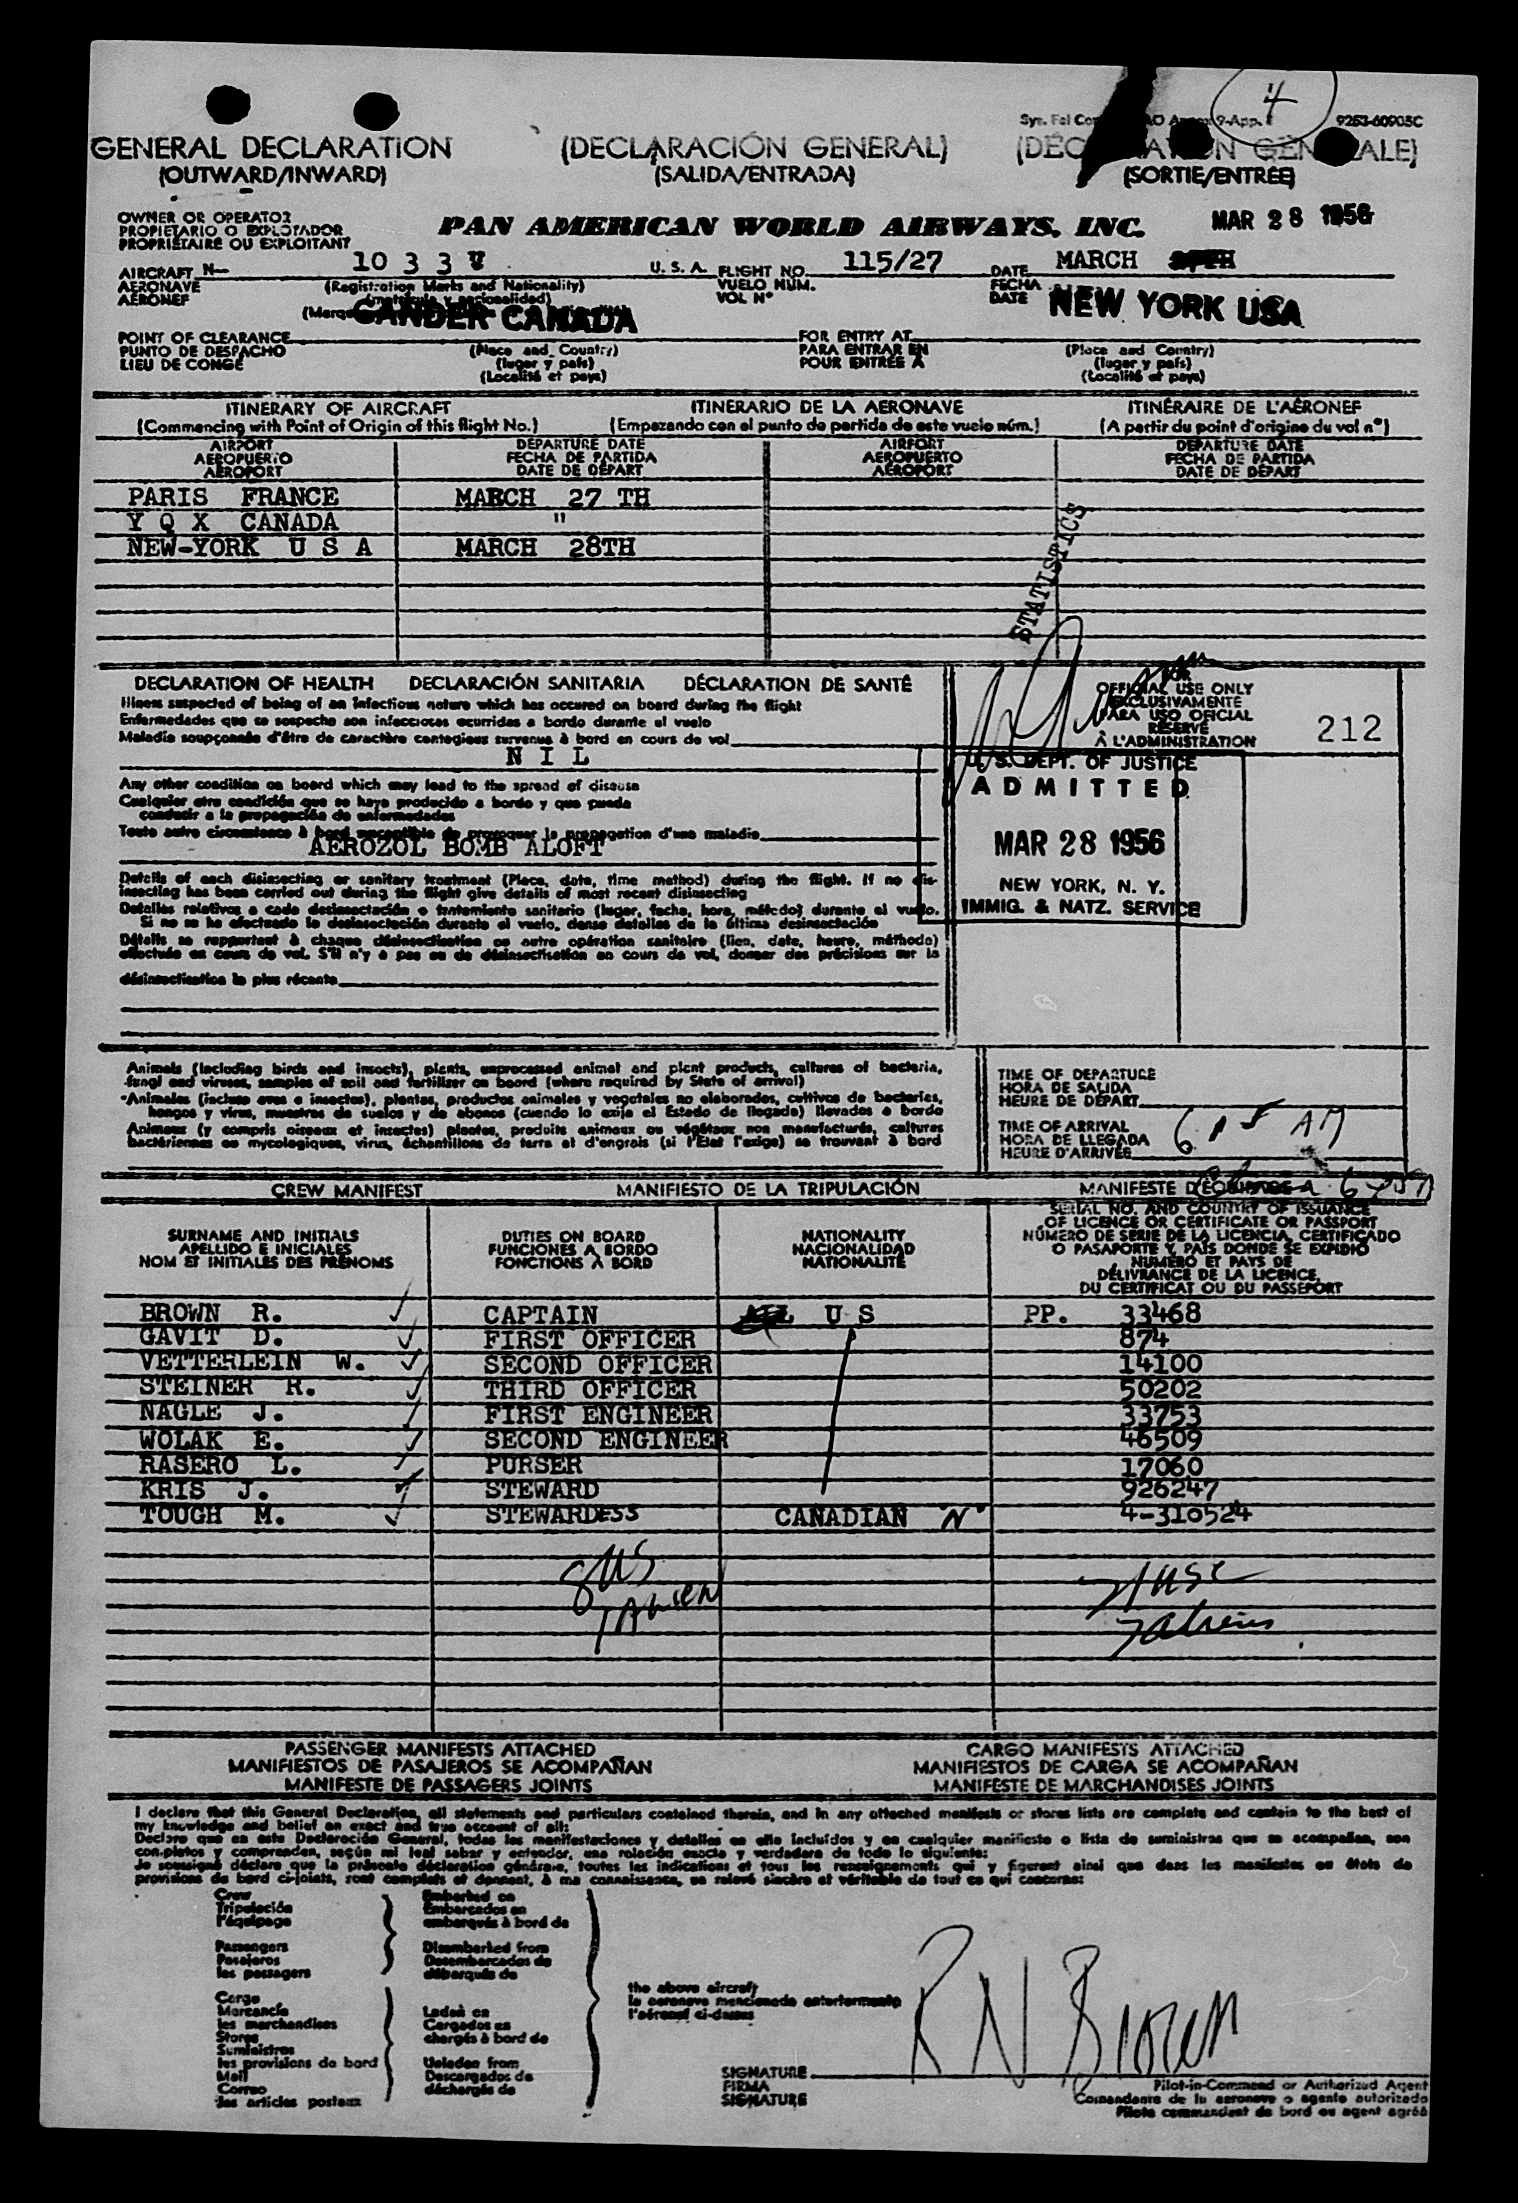 4
9253-60905C
GENERAL DECLARATION (DECLARACIÓN GENERAL)
(OUTWARD/INWARD) (SALIDA/ENTRADA) (SORTIE/ENTRÉE)
OWNER OR OPERATOR
PROPIETARIO O EXPLOTADOR
PROPRIÉTAIRE OU EXPLOITANT
PAN AMERICAN WORLD AIRWAYS, INC. MAR 28 1956
AIRCRAFT N— 10 3 3 V U. S. A. FLIGHT NO. 115/27 DATE MARCH
AERONAVE (Registration Marks and Nationality) VUELO NÚM. FECHA
AÉRONEF VOL N° DATE
GANDER CANADA NEW YORK USA
POINT OF CLEARANCE (Place and Country) FOR ENTRY AT (Place and Country)
PUNTO DE DESPACHO (lugar y país) PARA ENTRAR EN (lugar y país)
LIEU DE CONGÉ (Localité et pays) POUR ENTRÉE À (Localité et pays)
ITINERARY OF AIRCRAFT ITINERARIO DE LA AERONAVE ITINÉRAIRE DE L'AÉRONEF
(Commencing with Point of Origin of this flight No.) (Empezando con el punto de partida de este vuelo núm.) (A partir du point d'origine du vol n°)
AIRPORT DEPARTURE DATE AIRPORT DEPARTURE DATE
AEROPUERTO FECHA DE PARTIDA AEROPUERTO FECHA DE PARTIDA
AÉROPORT DATE DE DÉPART AÉROPORT DATE DE DÉPART
PARIS FRANCE MARCH 27 TH
Y Q X CANADA "
NEW-YORK U S A MARCH 28TH
STATISTICS
DECLARATION OF HEALTH DECLARACIÓN SANITARIA DÉCLARATION DE SANTÉ
Illness suspected of being of an infectious nature which has occured on board during the flight
Enfermedades que se sospecha son infecciosas ocurridas a bordo durante el vuelo
Maladie soupçonnée d'être de caractère contagieux survenue à bord en cours de vol
N I L
FOR
OFFICIAL USE ONLY
EXCLUSIVAMENTE
PARA USO OFICIAL
RÉSERVÉ
À L'ADMINISTRATION
212
Any other condition on board which may lead to the spread of disease
Cualquier otra condición que se haya producido a bordo y que pueda
conducir a la propagación de enfermedades
Toute autre circonstance à bord susceptible de provoquer la propagation d'une maladie
AEROZOL BOMB ALOFT
U. S. DEPT. OF JUSTICE
ADMITTED
MAR 28 1956
NEW YORK, N. Y.
IMMIG. & NATZ. SERVICE
Details of each disinsecting or sanitary treatment (Place, date, time method) during the flight. If no dis-
insecting has been carried out during the flight give details of most recent disinsecting
Detalles relativos a cada desinsectación o tratamiento sanitario (lugar, fecha, hora, método) durante el vuelo.
Si no se ha efectuado la desinsectación durante el vuelo, dense detalles de la última desinsectación
Détails se rapportant à chaque désinsectisation ou autre opération sanitaire (lieu, date, heure, méthode)
effectuée en cours de vol. S'il n'y a pas eu de désinsectisation en cours de vol, donner des précisions sur la
désinsectisation la plus récente
Animals (including birds and insects), plants, unprocessed animal and plant products, cultures of bacteria,
fungi and viruses, samples of soil and fertilizer on board (where required by State of arrival)
Animales (incluso aves e insectos), plantas, productos animales y vegetales no elaborados, cultivos de bacterias,
hongos y virus, muestras de suelos y de abonos (cuando lo exija el Estado de llegada) llevados a bordo
Animaux (y compris oiseaux et insectes) plantes, produits animaux ou végétaux non manufacturés, cultures
bactériennes ou mycologiques, virus, échantillons de terre et d'engrais (si l'État l'exige) se trouvant à bord
TIME OF DEPARTURE
HORA DE SALIDA
HEURE DE DÉPART
TIME OF ARRIVAL
HORA DE LLEGADA
HEURE D'ARRIVÉE
615 AM
CREW MANIFEST MANIFIESTO DE LA TRIPULACIÓN MANIFESTE
SURNAME AND INITIALS DUTIES ON BOARD NATIONALITY SERIAL NO. AND COUNTRY OF ISSUANCE
APELLIDO E INICIALES FUNCIONES A BORDO NACIONALIDAD OF LICENCE OR CERTIFICATE OR PASSPORT
NOM ET INITIALES DES PRÉNOMS FONCTIONS À BORD NATIONALITÉ NÚMERO DE SERIE DE LA LICENCIA, CERTIFICADO
O PASAPORTE Y PAÍS DONDE SE EXPIDIÓ
NUMÉRO ET PAYS DE
DÉLIVRANCE DE LA LICENCE,
DU CERTIFICAT OU DU PASSEPORT
BROWN R. CAPTAIN U S PP. 33468
GAVIT D. FIRST OFFICER 874
VETTERLEIN W. SECOND OFFICER 14100
STEINER R. THIRD OFFICER 50202
NAGLE J. FIRST ENGINEER 33753
WOLAK E. SECOND ENGINEER 46509
RASERO L. PURSER 17060
KRIS J. STEWARD 926247
TOUGH M. STEWARDESS CANADIAN "N" 4-310524
8 US
1 Alien
PASSENGER MANIFESTS ATTACHED CARGO MANIFESTS ATTACHED
MANIFIESTOS DE PASAJEROS SE ACOMPAÑAN MANIFIESTOS DE CARGA SE ACOMPAÑAN
MANIFESTE DE PASSAGERS JOINTS MANIFESTE DE MARCHANDISES JOINTS
I declare that this General Declaration, all statements and particulars contained therein, and in any attached manifests or stores lists are complete and contain to the best of
my knowledge and belief an exact and true account of all:
Declaro que en esta Declaración General, todas las manifestaciones y detalles en ella incluídos y en cualquier manifiesto o lista de suministros que se acompañan, son
completos y comprenden, según mi leal saber y entender, una relación exacta y verdadera de todo lo siguiente:
Je soussigné déclare que la présente déclaration générale, toutes les indications et tous les renseignements qui y figurent ainsi que dans les manifestes ou états de
provisions de bord ci-joints, sont complets et donnent, à ma connaissance, un relevé sincère et véritable de tout ce qui concerne:
Crew Embarked on
Tripulación Embarcados en
l'équipage embarqués à bord de
Passengers Disembarked from
Pasajeros Desembarcados de
les passagers débarqués de
the above aircraft
la aeronave mencionada anteriormente
l'aéronef ci-dessus
Cargo
Mercancía Laded on
les marchandises Cargados en
Stores chargés à bord de
Suministros
les provisions de bord Unladen from
Mail Descargados de
Correo déchargés de
les articles postaux
R N Brown
SIGNATURE
FIRMA
SIGNATURE
Pilot-in-Command or Authorized Agent
Comandante de la aeronave o agente autorizado
Pilote commandant de bord ou agent agréé